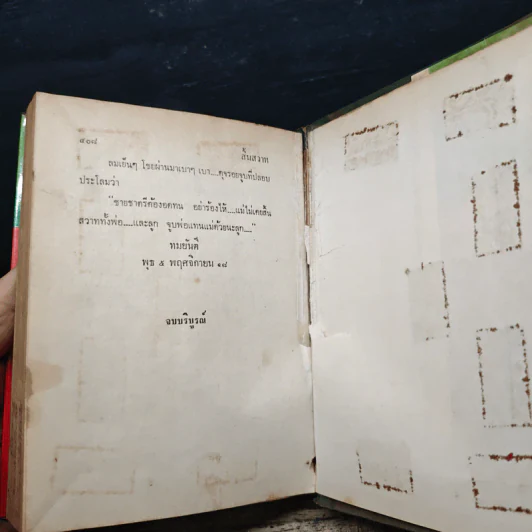 ๔๖๘ สิ้นสวาท
ลมเย็นๆ โชยผ่านมาเบาๆ เบา....ดุจรอยจูบที่ปลอบ
ประโลมว่า
"ชายชาตรีต้องอดทน อย่าร้องไห้....แม่ไม่เคยสิ้น
สวาททั้งพ่อ....และลูก จูบพ่อแทนแม่ด้วยนะลูก...."
ทมยันตี
พุธ ๕ พฤศจิกายน ๑๘
จบบริบูรณ์